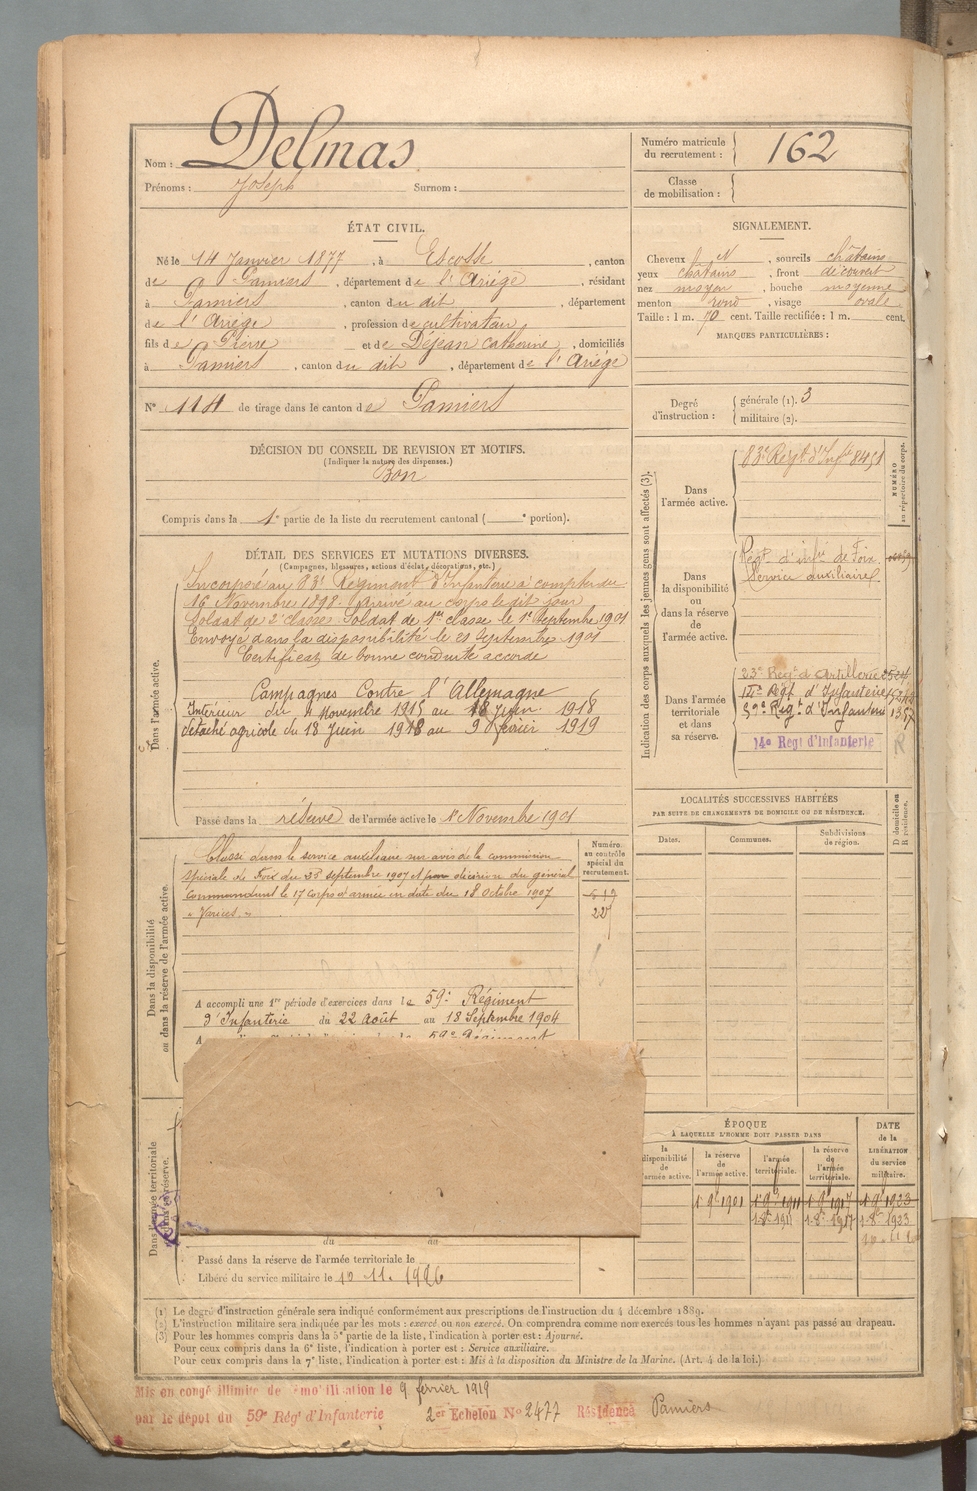 Nom : Delmas
Prénoms : Joseph Surnom :
Numéro matricule du recrutement : 162
Classe de mobilisation :
ÉTAT CIVIL.
Né le 14 Janvier 1877, à Escosse, canton
de Pamiers, département de l'Ariège, résidant
à Pamiers, canton du dit, département
de l'Ariège, profession de cultivateur,
fils de Pierre et de Déjean Catherine, domiciliés
à Pamiers, canton du dit, département de l'Ariège
N° 114 de tirage dans le canton de Pamiers
SIGNALEMENT.
Cheveux N, sourcils châtains
yeux châtains, front découvert
nez moyen, bouche moyenne
menton rond, visage ovale
Taille : 1 m. 70 cent. Taille rectifiée : 1 m. cent.
MARQUES PARTICULIÈRES :
Degré d'instruction : générale (1). 3
militaire (2).
DÉCISION DU CONSEIL DE REVISION ET MOTIFS.
(Indiquer la nature des dispenses.)
Bon
Compris dans la 1e partie de la liste du recrutement cantonal ( e portion).
DÉTAIL DES SERVICES ET MUTATIONS DIVERSES.
(Campagnes, blessures, actions d'éclat, décorations, etc.)
Dans l'armée active.
Incorporé au 83e Régiment d'Infanterie à compter du
16 Novembre 1898. Arrivé au corps le dit jour
Soldat de 2e classe. Soldat de 1re classe le 1er Septembre 1901
Envoyé dans la disponibilité le 21 Septembre 1901
Certificat de bonne conduite accordé
Campagnes Contre l'Allemagne
Intérieur du Novembre 1915 au 18 Juin 1918
détaché agricole du 18 Juin 1918 au 9 février 1919
Passé dans la réserve de l'armée active le 1er Novembre 1901
Indication des corps auxquels les jeunes gens sont affectés (3).
NUMÉRO au répertoire du corps.
Dans l'armée active.
83e Régt d'Infie 8451
Dans la disponibilité ou dans la réserve de l'armée active.
Régt d'infie de Foix
Service auxiliaire
Dans l'armée territoriale et dans sa réserve.
23e Régt d'Artillerie
Régt d'Infanterie
59e Régt d'Infanterie
14e Regt d'Infanterie
LOCALITÉS SUCCESSIVES HABITÉES
PAR SUITE DE CHANGEMENTS DE DOMICILE OU DE RÉSIDENCE.
Dates. Communes. Subdivisions de région.
D domicile ou R résidence.
Dans la disponibilité ou dans la réserve de l'armée active.
Numéro au contrôle spécial du recrutement.
Classé dans le service auxiliaire sur avis de la commission
spéciale de Foix du 28 septembre 1907 et décision du général
commandant le 17 corps d'armée en date du 18 Octobre 1907
"Varices."
227
A accompli une 1re période d'exercices dans le 59e Régiment
d'Infanterie du 22 Août au 18 Septembre 1904
59e Régiment
ÉPOQUE
À LAQUELLE L'HOMME DOIT PASSER DANS
la disponibilité de l'armée active.
la réserve de l'armée active.
l'armée territoriale.
la réserve de l'armée territoriale.
DATE de la LIBÉRATION du service militaire.
1 9bre 1901 1 9bre 1911 1 9bre 1917 1 9bre 1923
1 8bre 1911 1 8bre 1917 1 8bre 1923
Dans l'armée territoriale et dans sa réserve.
du au
Passé dans la réserve de l'armée territoriale le
Libéré du service militaire le 10.11.1926
(1) Le degré d'instruction générale sera indiqué conformément aux prescriptions de l'instruction du 4 décembre 1889.
(2) L'instruction militaire sera indiquée par les mots : exercé ou non exercé. On comprendra comme non exercés tous les hommes n'ayant pas passé au drapeau.
(3) Pour les hommes compris dans la 5e partie de la liste, l'indication à porter est : Ajourné.
Pour ceux compris dans la 6e liste, l'indication à porter est : Service auxiliaire.
Pour ceux compris dans la 7e liste, l'indication à porter est : Mis à la disposition du Ministre de la Marine. (Art. 4 de la loi.)
Mis en congé illimité de démobilisation le 9 février 1919
par le dépôt du 59e Régt d'Infanterie 2e Echelon N° 2477 Résidence Pamiers